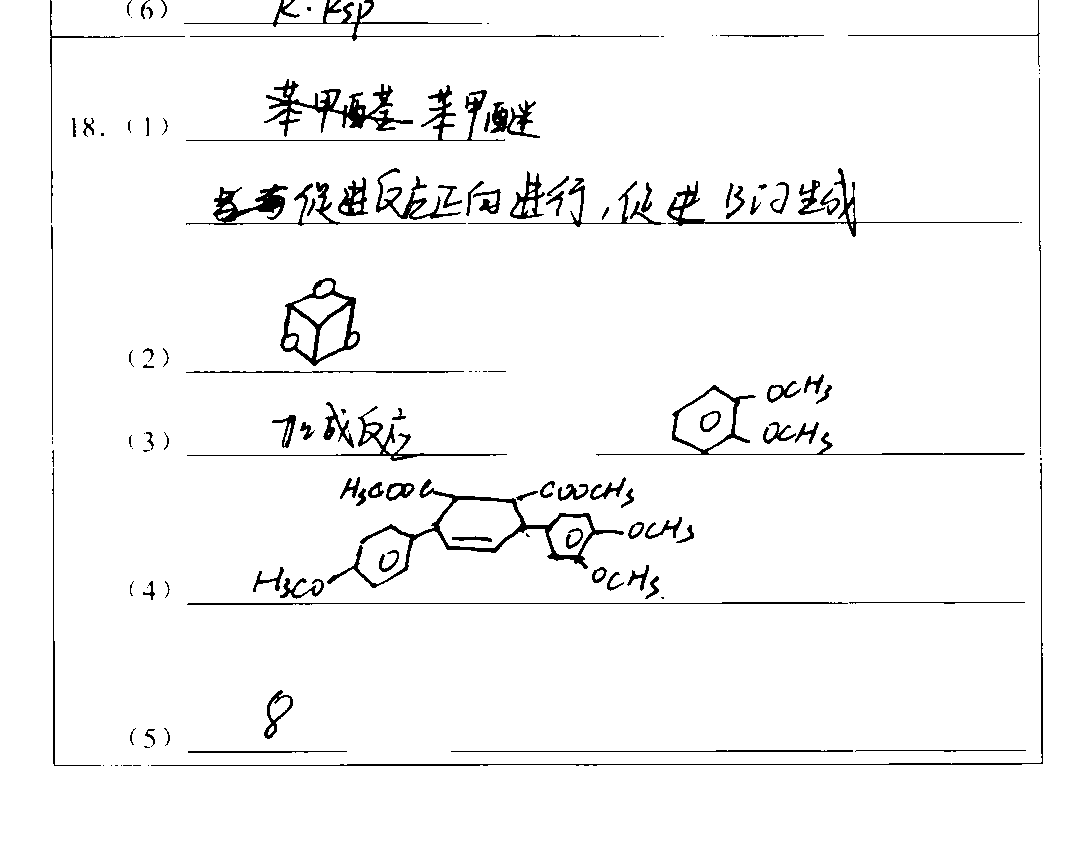 (6) K·Ksp
18. (1) 苯甲醛 苯甲醚
促进反应正向进行，促进B的生成
(2)
(3) 加成反应 OCH₃
OCH₃
H₃COOC COOCH₃
OCH₃
(4) H₃CO OCH₃
(5) 8